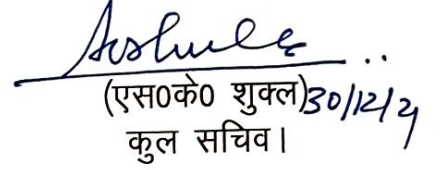 (एस0के0 शुक्ल) 30/12/21
कुल सचिव।